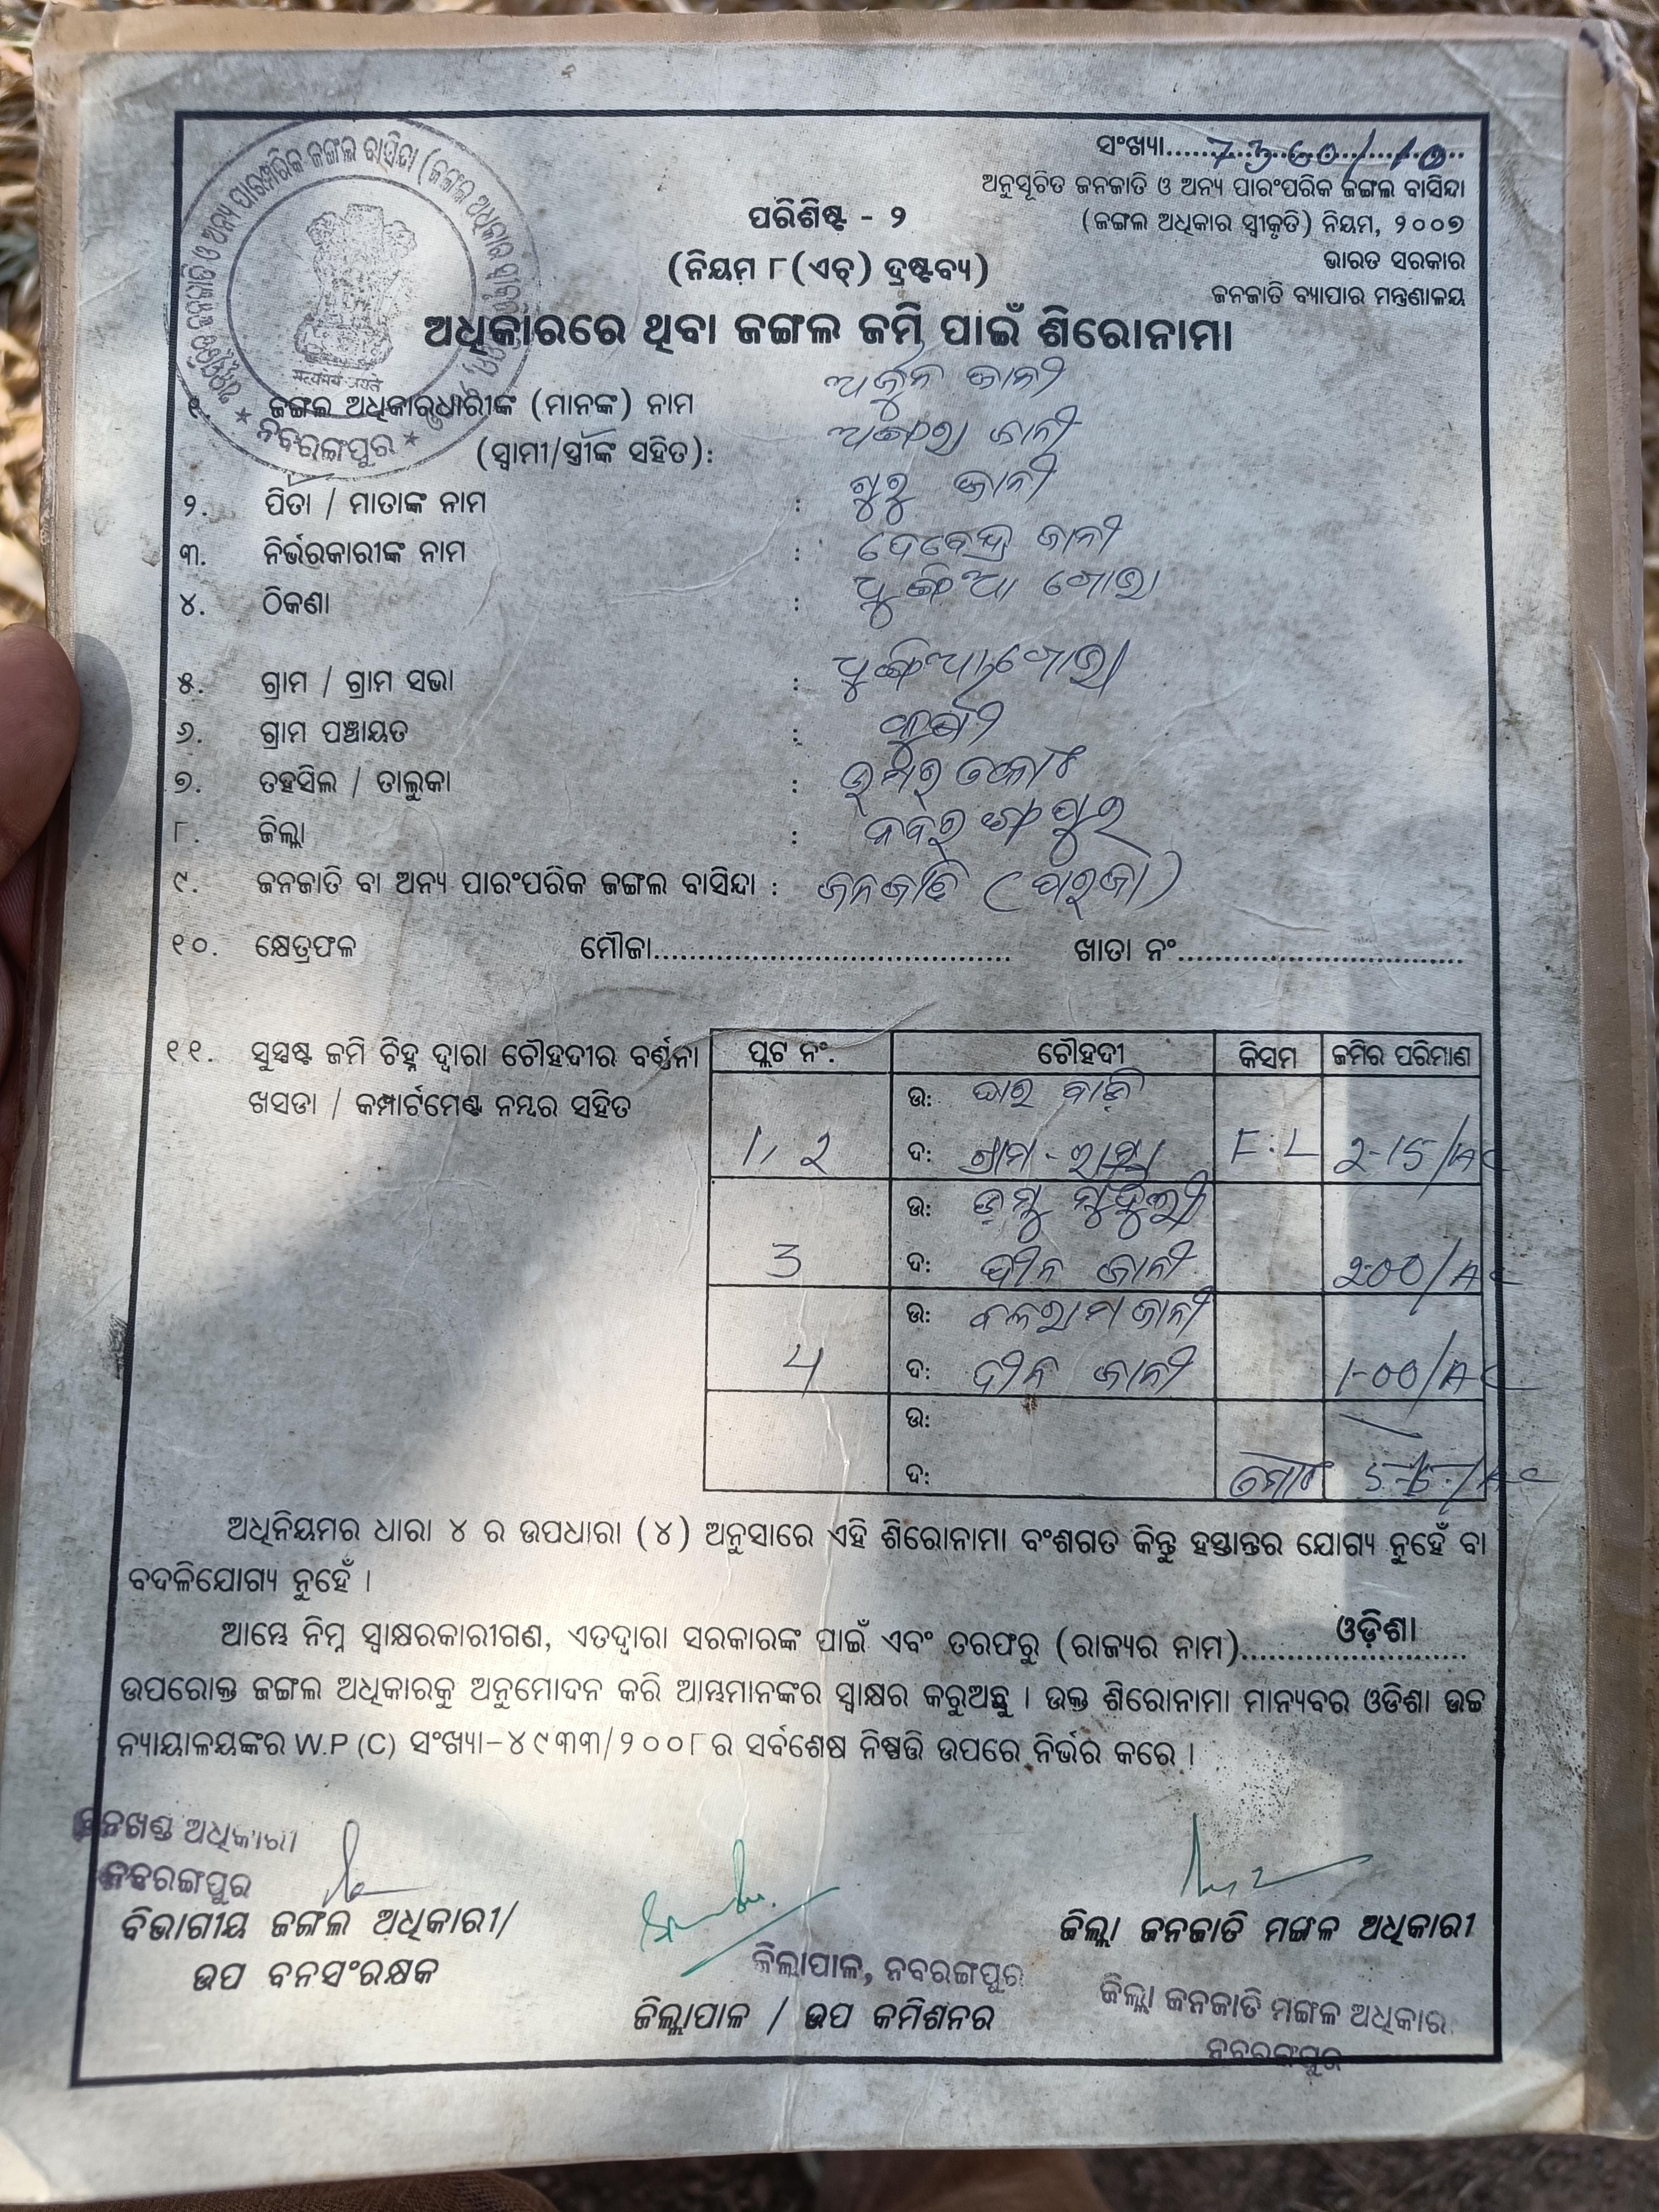 ସଂଖ୍ୟା.....7360/10
ଅନୁସୂଚିତ ଜନଜାତି ଓ ଅନ୍ୟ ପାରଂପରିକ ଜଙ୍ଗଲ ବାସିନ୍ଦା
(ଜଙ୍ଗଲ ଅଧିକାର ସ୍ୱୀକୃତି) ନିୟମ, ୨୦୦୭
ଭାରତ ସରକାର
ଜନଜାତି ବ୍ୟାପାର ମନ୍ତ୍ରଣାଳୟ
ପରିଶିଷ୍ଟ - ୨
(ନିୟମ ୮(ଏଚ୍) ଦ୍ରଷ୍ଟବ୍ୟ)
ଅଧିକାରରେ ଥିବା ଜଙ୍ଗଲ ଜମି ପାଇଁ ଶିରୋନାମା
ଓ ଅନ୍ୟ ପାରମ୍ପରିକ ଜଙ୍ଗଲ ବାସିନ୍ଦା (ଜଙ୍ଗଲ ଅଧିକାର
सत्यमेव जयते
★ ନବରଙ୍ଗପୁର ★
୧. ଜଙ୍ଗଲ ଅଧିକାରଧାରୀଙ୍କ (ମାନଙ୍କ) ନାମ ଅର୍ଜୁନ ଜାନୀ
(ସ୍ୱାମୀ/ସ୍ତ୍ରୀଙ୍କ ସହିତ): ଜାନୀ
୨. ପିତା / ମାତାଙ୍କ ନାମ : ଗୁରୁ ଜାନୀ
୩. ନିର୍ଭରକାରୀଙ୍କ ନାମ : ଦେବେନ୍ଦ୍ର ଜାନୀ
୪. ଠିକଣା :
୫. ଗ୍ରାମ / ଗ୍ରାମ ସଭା :
୬. ଗ୍ରାମ ପଞ୍ଚାୟତ :
୭. ତହସିଲ / ତାଲୁକା : ଉମରକୋଟ
୮. ଜିଲ୍ଲା : ନବରଙ୍ଗପୁର
୯. ଜନଜାତି ବା ଅନ୍ୟ ପାରଂପରିକ ଜଙ୍ଗଲ ବାସିନ୍ଦା : ଜନଜାତି (ପରଜା)
୧୦. କ୍ଷେତ୍ରଫଳ ମୌଜା.................... ଖାତା ନଂ....................
୧୧. ସୁସ୍ପଷ୍ଟ ଜମି ଚିହ୍ନ ଦ୍ୱାରା ଚୌହଦୀର ବର୍ଣ୍ଣନା
ଖସଡା / କମ୍ପାର୍ଟମେଣ୍ଟ ନମ୍ବର ସହିତ
ପ୍ଲଟ ନଂ. ଚୌହଦୀ କିସମ ଜମିର ପରିମାଣ
ଉ: ବାଡ଼ି
1, 2 ଦ: ଗ୍ରାମ - ରାସ୍ତା F.L 2-15/AC
ଉ:
3 ଦ: ଜାନୀ 2-00/AC
ଉ: ବଳରାମ ଜାନୀ
4 ଦ: ଦୀନ ଜାନୀ 1-00/AC
ଉ:
ଦ: ମୋଟ 5-15/AC
ଅଧିନିୟମର ଧାରା ୪ ର ଉପଧାରା (୪) ଅନୁସାରେ ଏହି ଶିରୋନାମା ବଂଶଗତ କିନ୍ତୁ ହସ୍ତାନ୍ତର ଯୋଗ୍ୟ ନୁହେଁ ବା
ବଦଳିଯୋଗ୍ୟ ନୁହେଁ ।
ଆମ୍ଭେ ନିମ୍ନ ସ୍ୱାକ୍ଷରକାରୀଗଣ, ଏତଦ୍ୱାରା ସରକାରଙ୍କ ପାଇଁ ଏବଂ ତରଫରୁ (ରାଜ୍ୟର ନାମ)......ଓଡ଼ିଶା......
ଉପରୋକ୍ତ ଜଙ୍ଗଲ ଅଧିକାରକୁ ଅନୁମୋଦନ କରି ଆମ୍ଭମାନଙ୍କର ସ୍ୱାକ୍ଷର କରୁଅଛୁ । ଉକ୍ତ ଶିରୋନାମା ମାନ୍ୟବର ଓଡିଶା ଉଚ୍ଚ
ନ୍ୟାୟାଳୟଙ୍କର W.P (C) ସଂଖ୍ୟା-୪୯୩୩/୨୦୦୮ର ସର୍ବଶେଷ ନିଷ୍ପତ୍ତି ଉପରେ ନିର୍ଭର କରେ ।
ବନଖଣ୍ଡ ଅଧିକାରୀ
ନବରଙ୍ଗପୁର
ବିଭାଗୀୟ ଜଙ୍ଗଲ ଅଧିକାରୀ/
ଉପ ବନସଂରକ୍ଷକ
ଜିଲ୍ଲାପାଳ, ନବରଙ୍ଗପୁର
ଜିଲ୍ଲାପାଳ / ଉପ କମିଶନର
ଜିଲ୍ଲା ଜନଜାତି ମଙ୍ଗଳ ଅଧିକାରୀ
ଜିଲ୍ଲା ଜନଜାତି ମଙ୍ଗଳ ଅଧିକାରୀ
ନବରଙ୍ଗପୁର